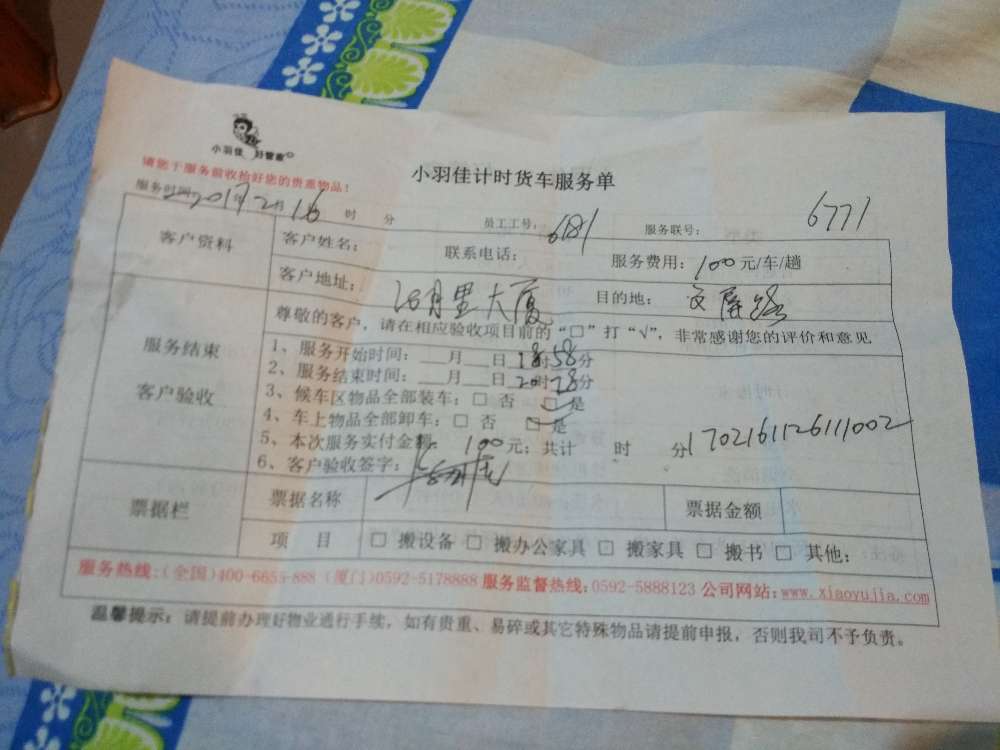 小羽佳 好管家
请您于服务前收拾好您的贵重物品！
小羽佳计时货车服务单
服务时间：2017年2月16 时 分 员工工号：6181 服务联号：6771
客户资料 客户姓名： 联系电话： 服务费用：100元/车/趟
客户地址： 大厦 目的地：文屏路
服务结束
客户验收
尊敬的客户，请在相应验收项目前的“□”打“√”，非常感谢您的评价和意见
1、服务开始时间：___月___日18时58分
2、服务结束时间：___月___日20时28分
3、候车区物品全部装车：□ 否 □ 是
4、车上物品全部卸车：□ 否 □ 是
5、本次服务实付金额 100元；共计 时 分 170216112611002
6、客户验收签字：
票据栏 票据名称 票据金额
项 目 □ 搬设备 □ 搬办公家具 □ 搬家具 □ 搬书 □ 其他：
服务热线：(全国)400-6655-888 (厦门)0592-5178888 服务监督热线：0592-5888123 公司网站：www.xiaoyujia.com
温馨提示：请提前办理好物业通行手续，如有贵重、易碎或其它特殊物品请提前申报，否则我司不予负责。